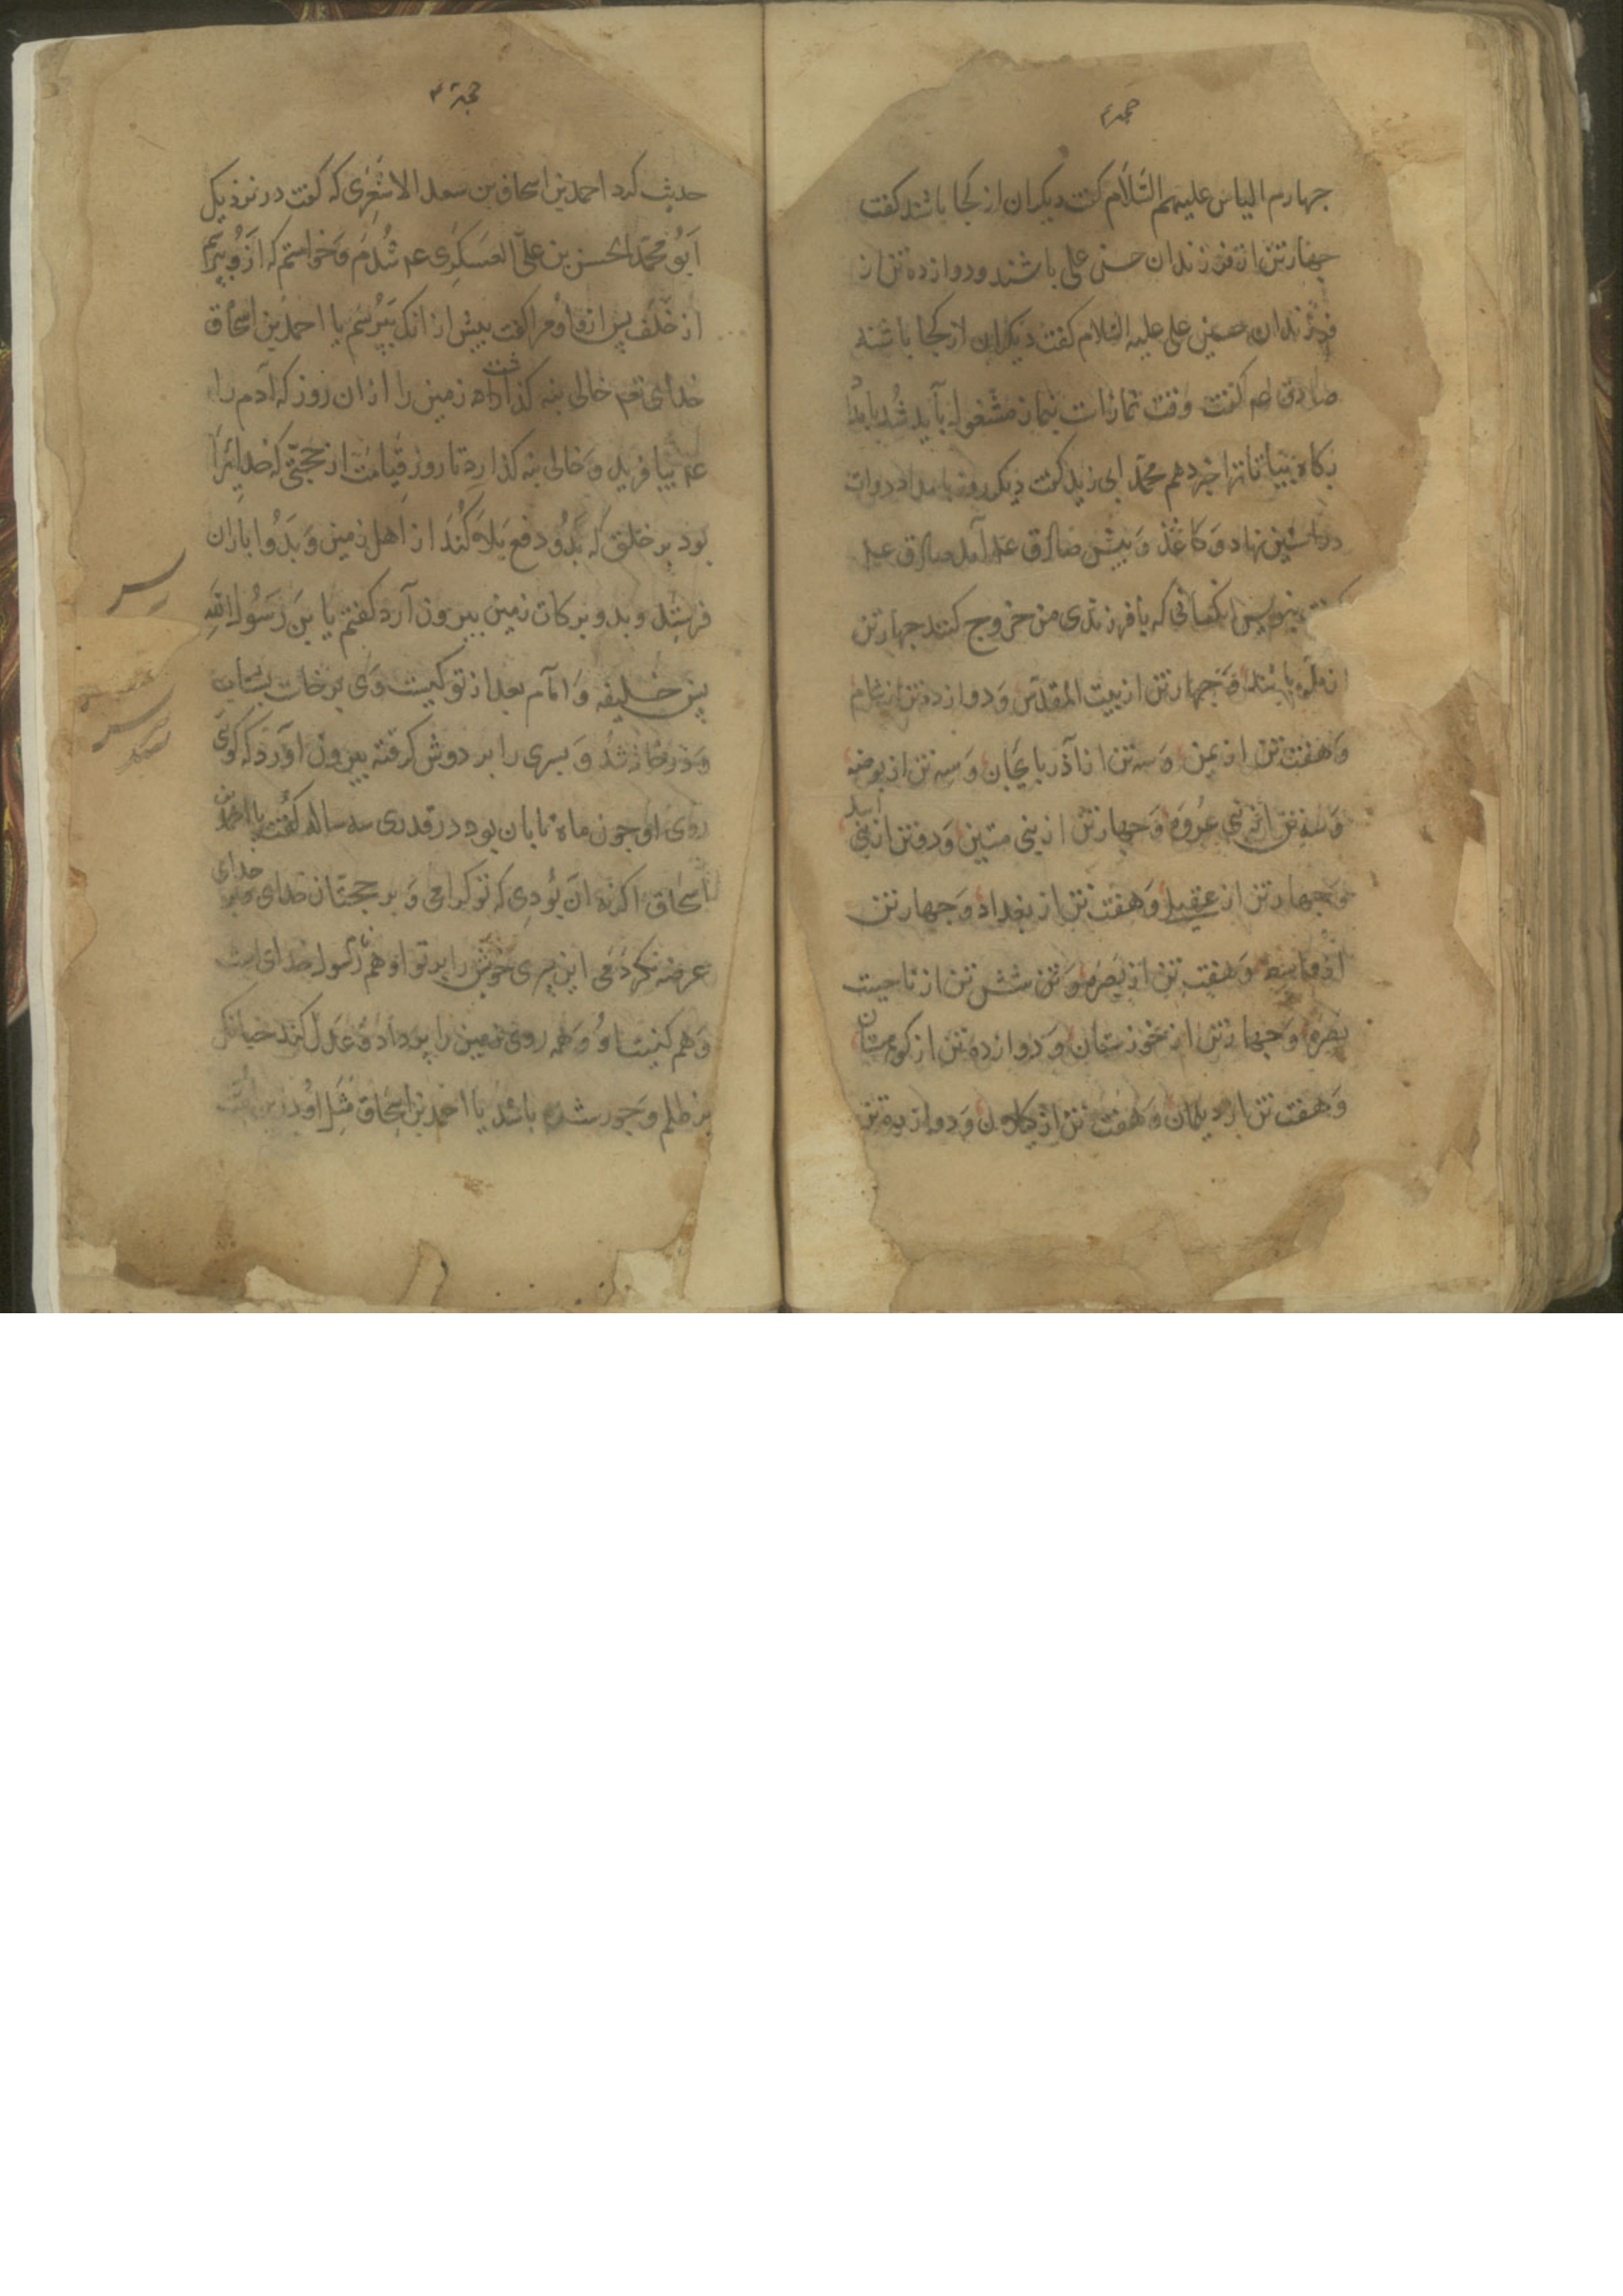 جهارم الیاس علیهم السَّلام کفت دیکران از کجا باشند کفت
جهارتن از فرزندان حسن علی باشند ودوازده تن از
فرزندان حسین علی علیه السلام کفت دیکران از کجا باشند
صادق عم کفت وقت نمازاست بنماز مشغول باید شد بامداد
بکاه بیا تا ترا خبر دهم محمّد ابی زید کفت دیکر روز بامداد دوات
در استین نهاد وَکاغذ وَبیش صادق عم آمد صادق عم
کفت بنویس انکسانی که با فرزندی من خروج کنند جهارتن
از مکّه باشند وَجهارتن از بیت المقدّس وَدوازده تن از شام
وَهفت تن از یمن وَسه تن از آذربایجان وَسه تن از بوضه
وَسه تن از بنی عُروَه وَجهارتن از بنی متین وَدوتن از بنی اسد
وَجهارتن از عقیل وَهفت تن از بغداد وَجهارتن
از واسط وَهفت تن از بَصره وَتن شش تن از ناحیت
بصره وَجهارتن از خوزستان وَدوازده تن از کوهستان
وَهفت تن از دیلمان وَهفت تن از وَدوازده تن
حجة ۴
حدیث کرد احمد بن اسحاق بن سعد الاشعری که کفت در نزدیک
ابَوُ محمّد الحسن بن علیّ العسکری عم شدم وَخواستم که ازوُ بپرسم
از خَلَف پس ازو اوُ مرا کفت بیش از انک بپُرسَم یا احمد بن اسحاق
خدای تع خالی بنه کذاشت زمین را از ان روز که آدم را
عم بیافرید وَخالی بنه کذارد تا روز قیامت از حجّتی که خدایرا
بود بر خلق که بدوُ دفع بلا کُند از اهل زمین وَبدوُ باران
فرستد وبدو برکات زمین بیرون آرد کفتم یا بن رَسُول اللّه
پس خلیفه وَامام بعد از تو کیست وَی برخاست بشتاب
وَدر خانه شُد وَبسری را بر دوش کرفته بیرون اوَرد که کوی
روی اوُ جون ماه تابان بود در قدری سه ساله کفت یا احمد بن
اسحاق اکر نه ان بوُدی که تو کرامی وَبر حجتان خدای
عرضه نکردَمی این پسری خویش را بر تو او هم نام رسُول خدای است
وَهم کنیت اوُ وَهمه روی زمین را پر داد وَعدل کند جنانکه
بر ظلم وَجور شده باشد یا احمد بن اسحاق مَثَل اوُ درین اُمّت